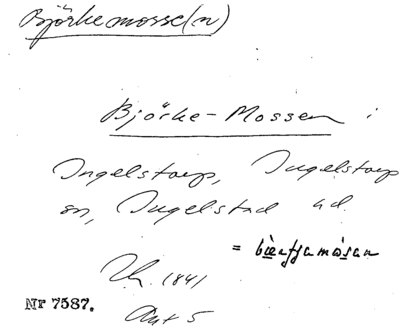 Björkemosse(n)
Björke-Mossen i
Ingelstorp, Ingelstorp
sn, Ingelstad hd.
=
Th. 1841
Nr 7587.
Akt 5